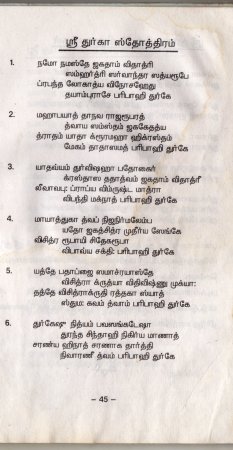 ஸ்ரீ துர்கா ஸ்தோத்திரம்
1. நமோ நமஸ்தே ஜகதாம் விதாத்ரி
ஸம்ஹர்த்ரி ஸர்வாந்தர ஸத்யரூபே
ப்ரபந்த லோகாத்ய விநோசஹேது
தயாம்புராசே பரிபாஹி துர்கே
2. மஹாபயாத் தாநவ ராஜரூபாத்
த்வாய ஸம்ஸ்தம் ஜககேதத்ய
த்ராதம் யாதா க்ரூரமஹா ஹிக்ரஸ்தம்
மேகம் தாதாஸமத் பரிபாஹி துர்கே
3. யாதவ்யம் துர்விஷஹா பதோகைர்
க்ரஸ்தாஸ ததாத்வம் ஜகதாம் விதாத்ரீ
லீவாவபு: ப்ராப்ய விம்ருஷ்ட மாத்ரா
விபந்தி மக்நாத் பரிபாஹி துர்கே
4. மாயாத்துகா த்வப் நிஜநிர்மலேம்ப
யதோ ஜகத்சித்ர முதீர்ய ஸேங்கே
விசித்ர ரூபாயி சிதேகரூபா
விபாவ்ய சக்தி: பரிபாஹி துர்கே
5. யத்தே பதாப்ஜை ஸமாச்ரயாஸ்தே
விசித்ரா க்ருத்யா விதிவிஷ்ணு முக்யா:
தத்தே விசித்ராக்ருதி ரத்தகா ஸ்யாத்
ஸ்தும: கவம் த்வாம் பரிபாஹி துர்கே
6. துர்கேஷு நித்யம் பவஸங்கடேஷா
துரந்த சிந்தாஹி நிகிர்ய மாணாத்
சரண்ய ஹிநாத் சரணாக தார்த்தி
நிவாரணீ த்வம் பரிபாஹி துர்கே
– 45 –